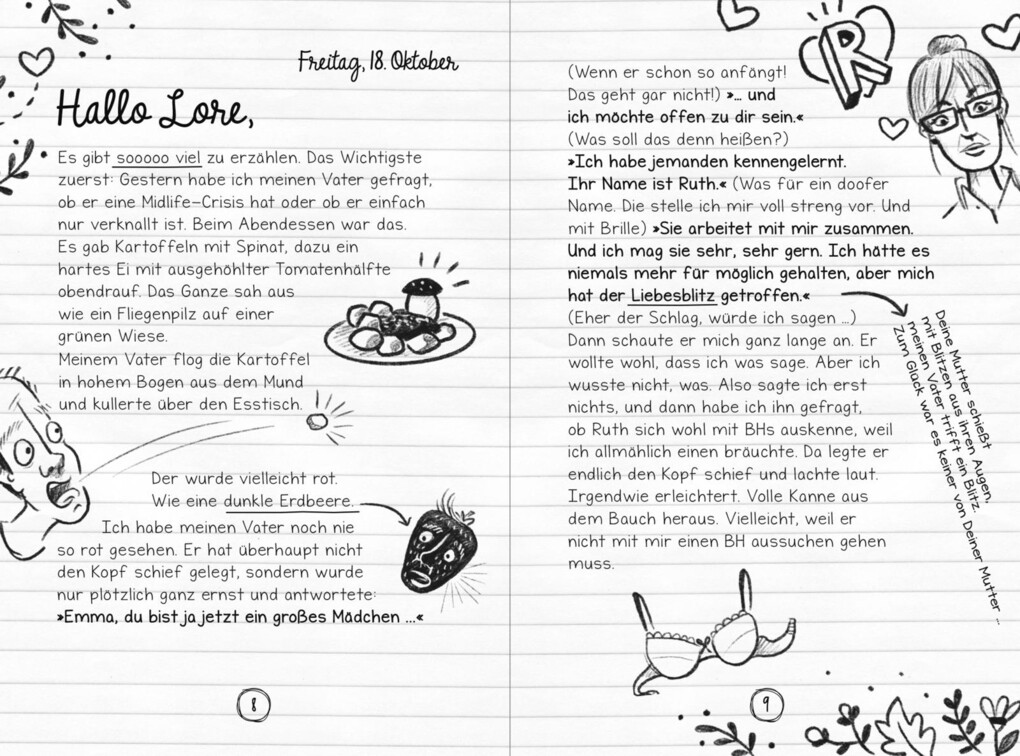 Freitag, 18. Oktober
Hallo Lore,
Es gibt sooooo viel zu erzählen. Das Wichtigste
zuerst: Gestern habe ich meinen Vater gefragt,
ob er eine Midlife-Crisis hat oder ob er einfach
nur verknallt ist. Beim Abendessen war das.
Es gab Kartoffeln mit Spinat, dazu ein
hartes Ei mit ausgehöhlter Tomatenhälfte
obendrauf. Das Ganze sah aus
wie ein Fliegenpilz auf einer
grünen Wiese.
Meinem Vater flog die Kartoffel
in hohem Bogen aus dem Mund
und kullerte über den Esstisch.
Der wurde vielleicht rot.
Wie eine dunkle Erdbeere.
Ich habe meinen Vater noch nie
so rot gesehen. Er hat überhaupt nicht
den Kopf schief gelegt, sondern wurde
nur plötzlich ganz ernst und antwortete:
»Emma, du bist ja jetzt ein großes Mädchen ...«
8
R
(Wenn er schon so anfängt!
Das geht gar nicht!) »... und
ich möchte offen zu dir sein.«
(Was soll das denn heißen?)
»Ich habe jemanden kennengelernt.
Ihr Name ist Ruth.« (Was für ein doofer
Name. Die stelle ich mir voll streng vor. Und
mit Brille) »Sie arbeitet mit mir zusammen.
Und ich mag sie sehr, sehr gern. Ich hätte es
niemals mehr für möglich gehalten, aber mich
hat der Liebesblitz getroffen.«
(Eher der Schlag, würde ich sagen ...)
Dann schaute er mich ganz lange an. Er
wollte wohl, dass ich was sage. Aber ich
wusste nicht, was. Also sagte ich erst
nichts, und dann habe ich ihn gefragt,
ob Ruth sich wohl mit BHs auskenne, weil
ich allmählich einen bräuchte. Da legte er
endlich den Kopf schief und lachte laut.
Irgendwie erleichtert. Volle Kanne aus
dem Bauch heraus. Vielleicht, weil er
nicht mit mir einen BH aussuchen gehen
muss.
Deine Mutter schießt
mit Blitzen aus ihren Augen,
meinen Vater trifft ein Blitz.
Zum Glück war es keiner von Deiner Mutter ...
9